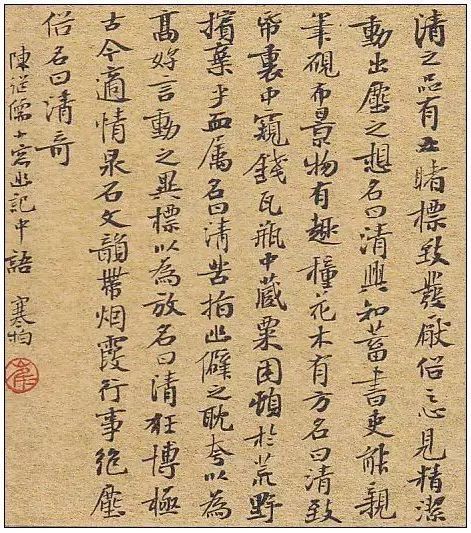 清之品有五睹標致發厭俗之心見精潔
動出塵之想名曰清興知蓄書史能親
筆硯布景物有趣種花木有方名曰清致
帋裹中窺錢瓦瓶中藏粟困頓於荒野
擯棄乎血屬名曰清苦指幽僻之耽夸以為
高好言動之異標以為放名曰清狂博極
古今適情泉石文韻帶烟霞行事絕塵
俗名曰清奇
陳繼儒小窓幽記中語 寒